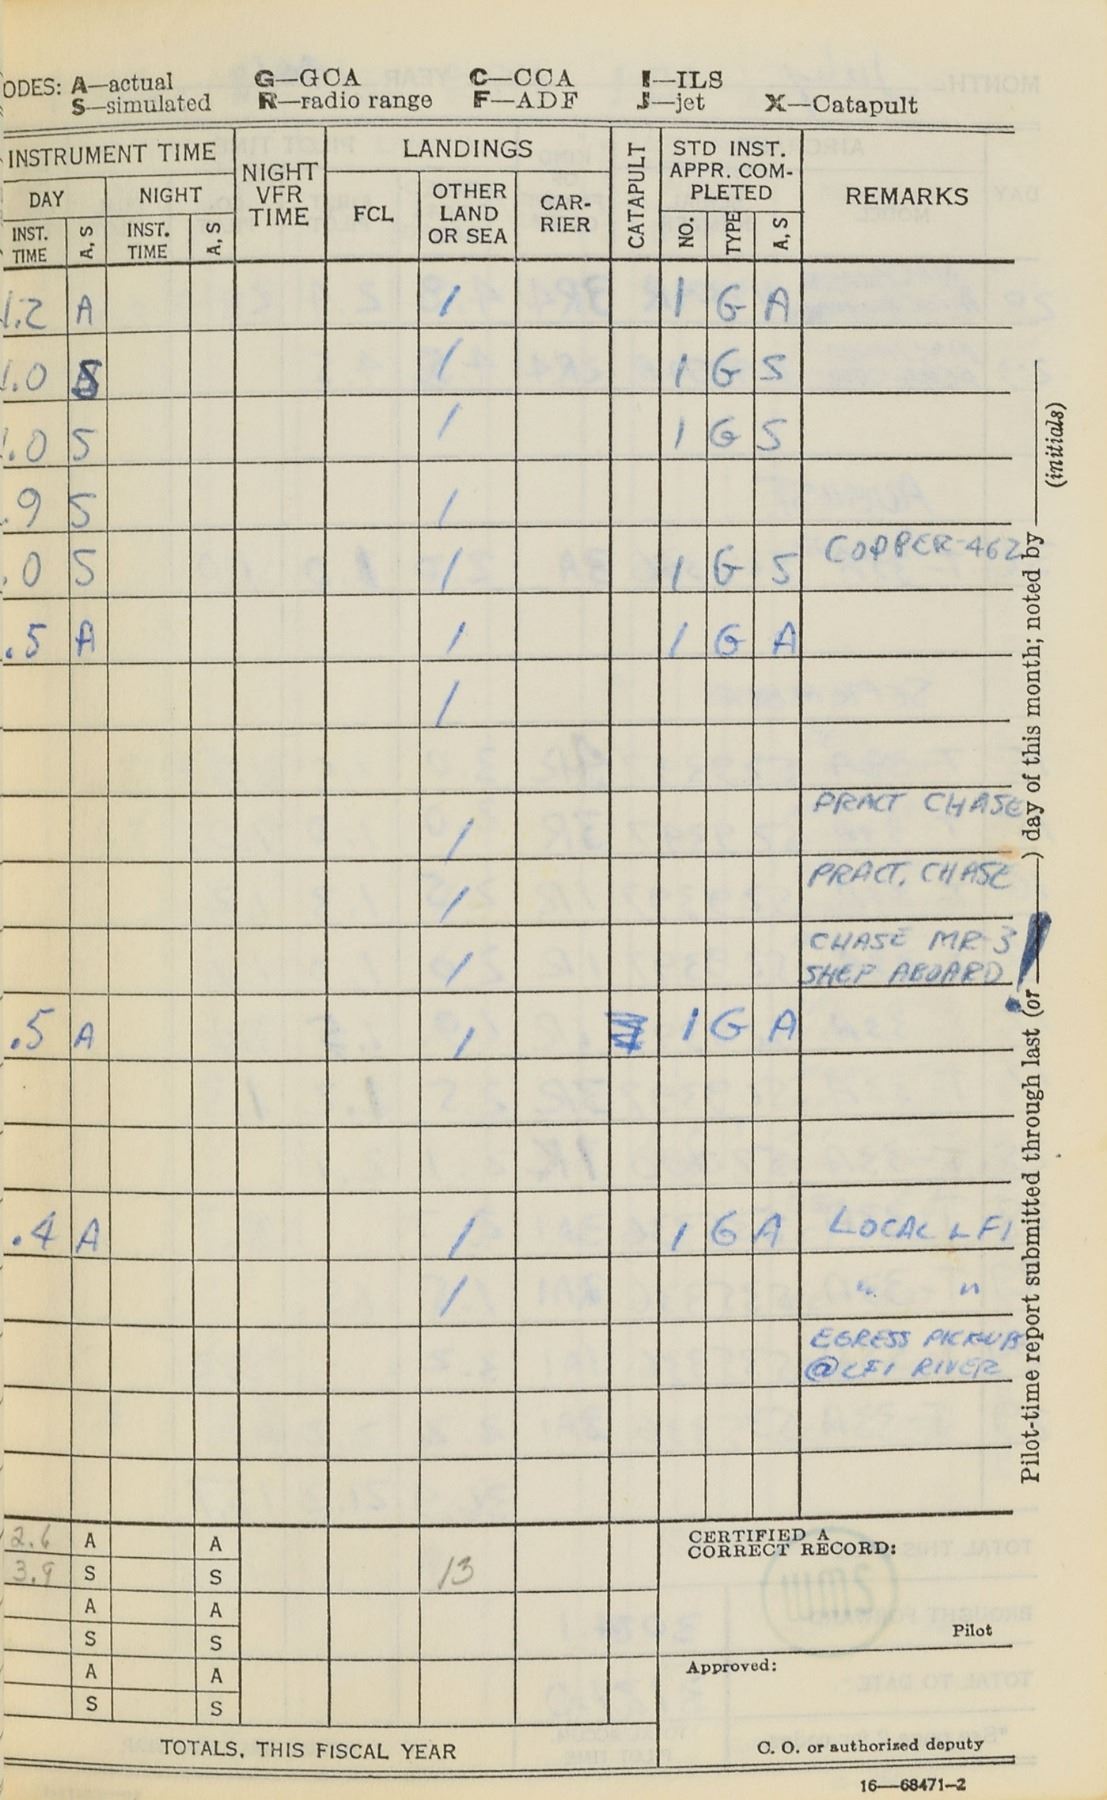 ODES: A—actual G—GCA C—CCA I—ILS
S—simulated R—radio range F—ADF J—jet X—Catapult
INSTRUMENT TIME NIGHT VFR TIME LANDINGS CATAPULT STD INST. APPR. COMPLETED REMARKS
DAY NIGHT FCL OTHER LAND OR SEA CARRIER NO. TYPE A, S
INST. TIME A, S INST. TIME A, S
1.2 A / 1 G A
1.0 S / 1 G S
1.0 S / 1 G S
.9 S /
.0 S / 1 G S COPPER-462
.5 A / 1 G A
/
/ PRACT CHASE
/ PRACT. CHASE
/ CHASE MR-3
SHEP ABOARD !
.5 A / 1 G A
.4 A / 1 G A LOCAL LFI
/ " "
EGRESS PICKUP
@ LFI RIVER
2.6 A A
3.9 S S 13
A A
S S
A A
S S
CERTIFIED A
CORRECT RECORD:
Pilot
Approved:
TOTALS, THIS FISCAL YEAR
C. O. or authorized deputy
16—68471-2
Pilot-time report submitted through last (or ) day of this month; noted by
(initials)